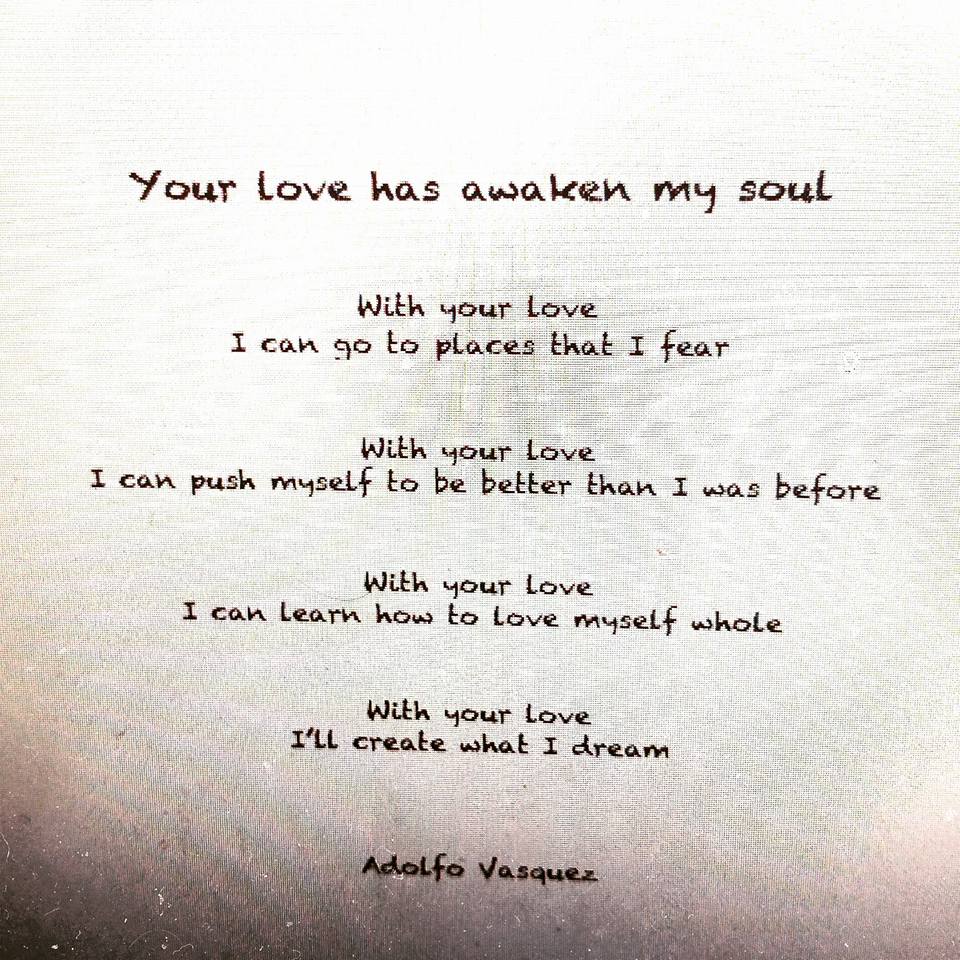 Your love has awaken my soul
With your love
I can go to places that I fear
With your love
I can push myself to be better than I was before
With your love
I can learn how to love myself whole
With your love
I'll create what I dream
Adolfo Vasquez